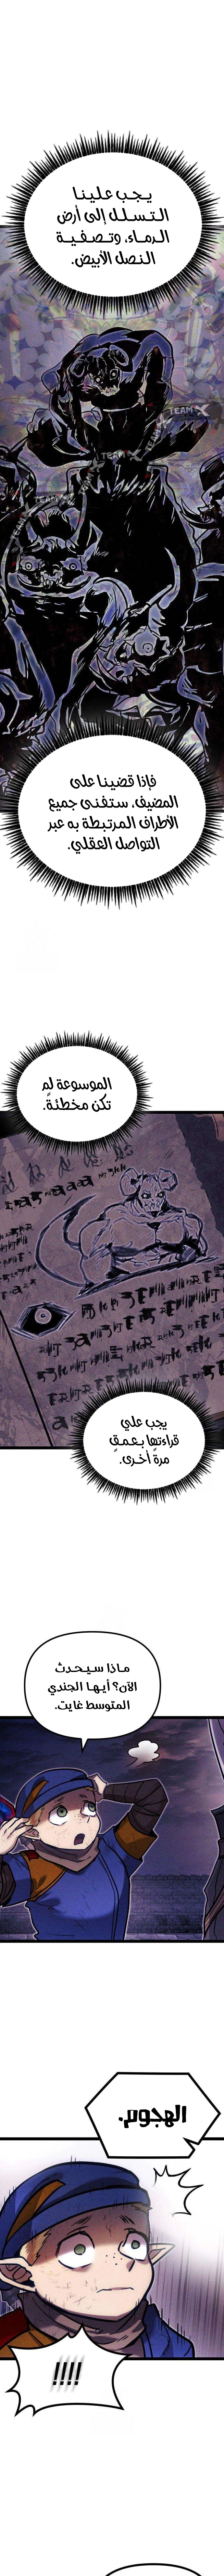 يجب علينا
التسلل إلى أرض
الرماء، وتصفية
النصل الأبيض.
TEAM X
TEAM X
TEAM X
TEAM
فإذا قضينا على
المضيف، ستفنى جميع
الأطراف المرتبطة به عبر
التواصل العقلي.
الموسوعة لم
تكن مخطئةً.
يجب علي
قراءتها بعمقٍ
مرةً أخرى.
ماذا سيحدث
الآن؟ أيها الجندي
المتوسط غايت.
الهجوم.
!!!!